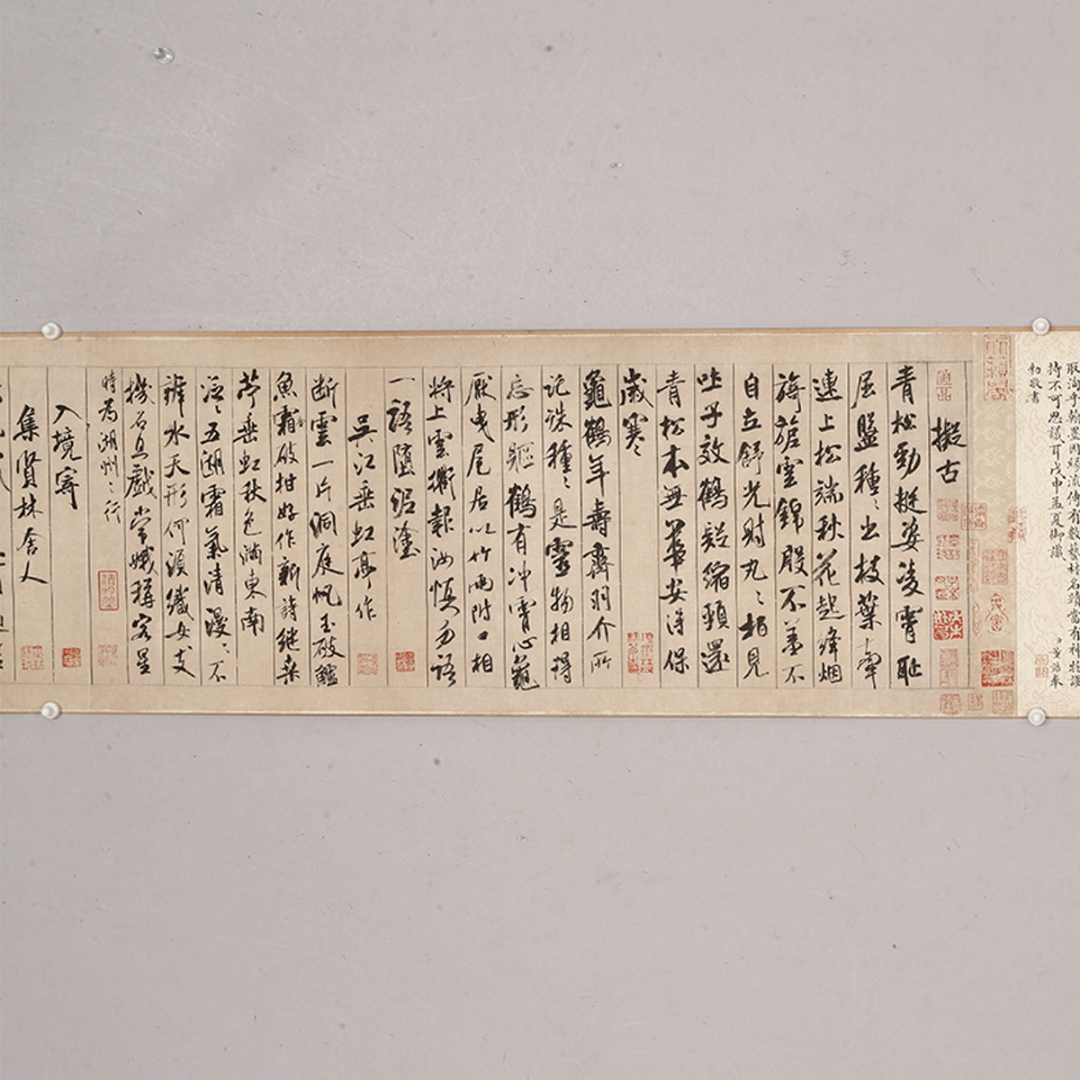 持不可思議耳戊申孟夏御識 董誥奉
勅敬書
擬古
青松勁挺姿淩霄恥
屈盤種〻出枝葉牽
連上松端秋花起絳烟
旖旎雲錦殷不羞不
自立舒光射丸〻柏見
吐子效鶴疑縮頸還
青松本無華安得保
歲寒〻
龜鶴年壽齊羽介所
託殊種〻是靈物相得
忘形軀鶴有冲霄心龜
厭曳尾居以竹兩附口相
將上雲衢報汝慎勿語
一語墮泥塗
吳江垂虹亭作
断雲一片洞庭帆玉破鱸
魚霜破柑好作新詩繼桑
苧垂虹秋色滿東南
泛〻五湖霜氣清漫〻不
辨水天形何須織女支
機石且戲常娥稱客星
時為湖州之行
入境寄
集賢林舍人